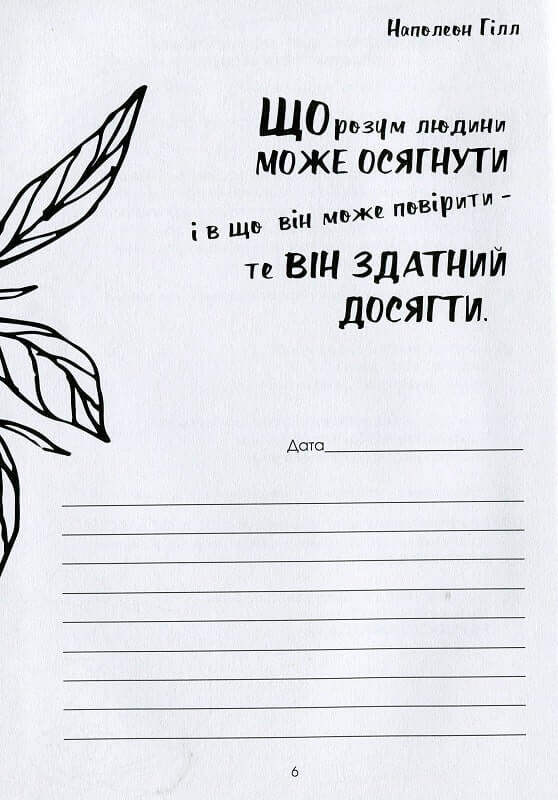 Наполеон Гілл
ЩО розум людини
МОЖЕ ОСЯГНУТИ
і в що він може повірити –
те ВІН ЗДАТНИЙ
ДОСЯГТИ.
Дата
6